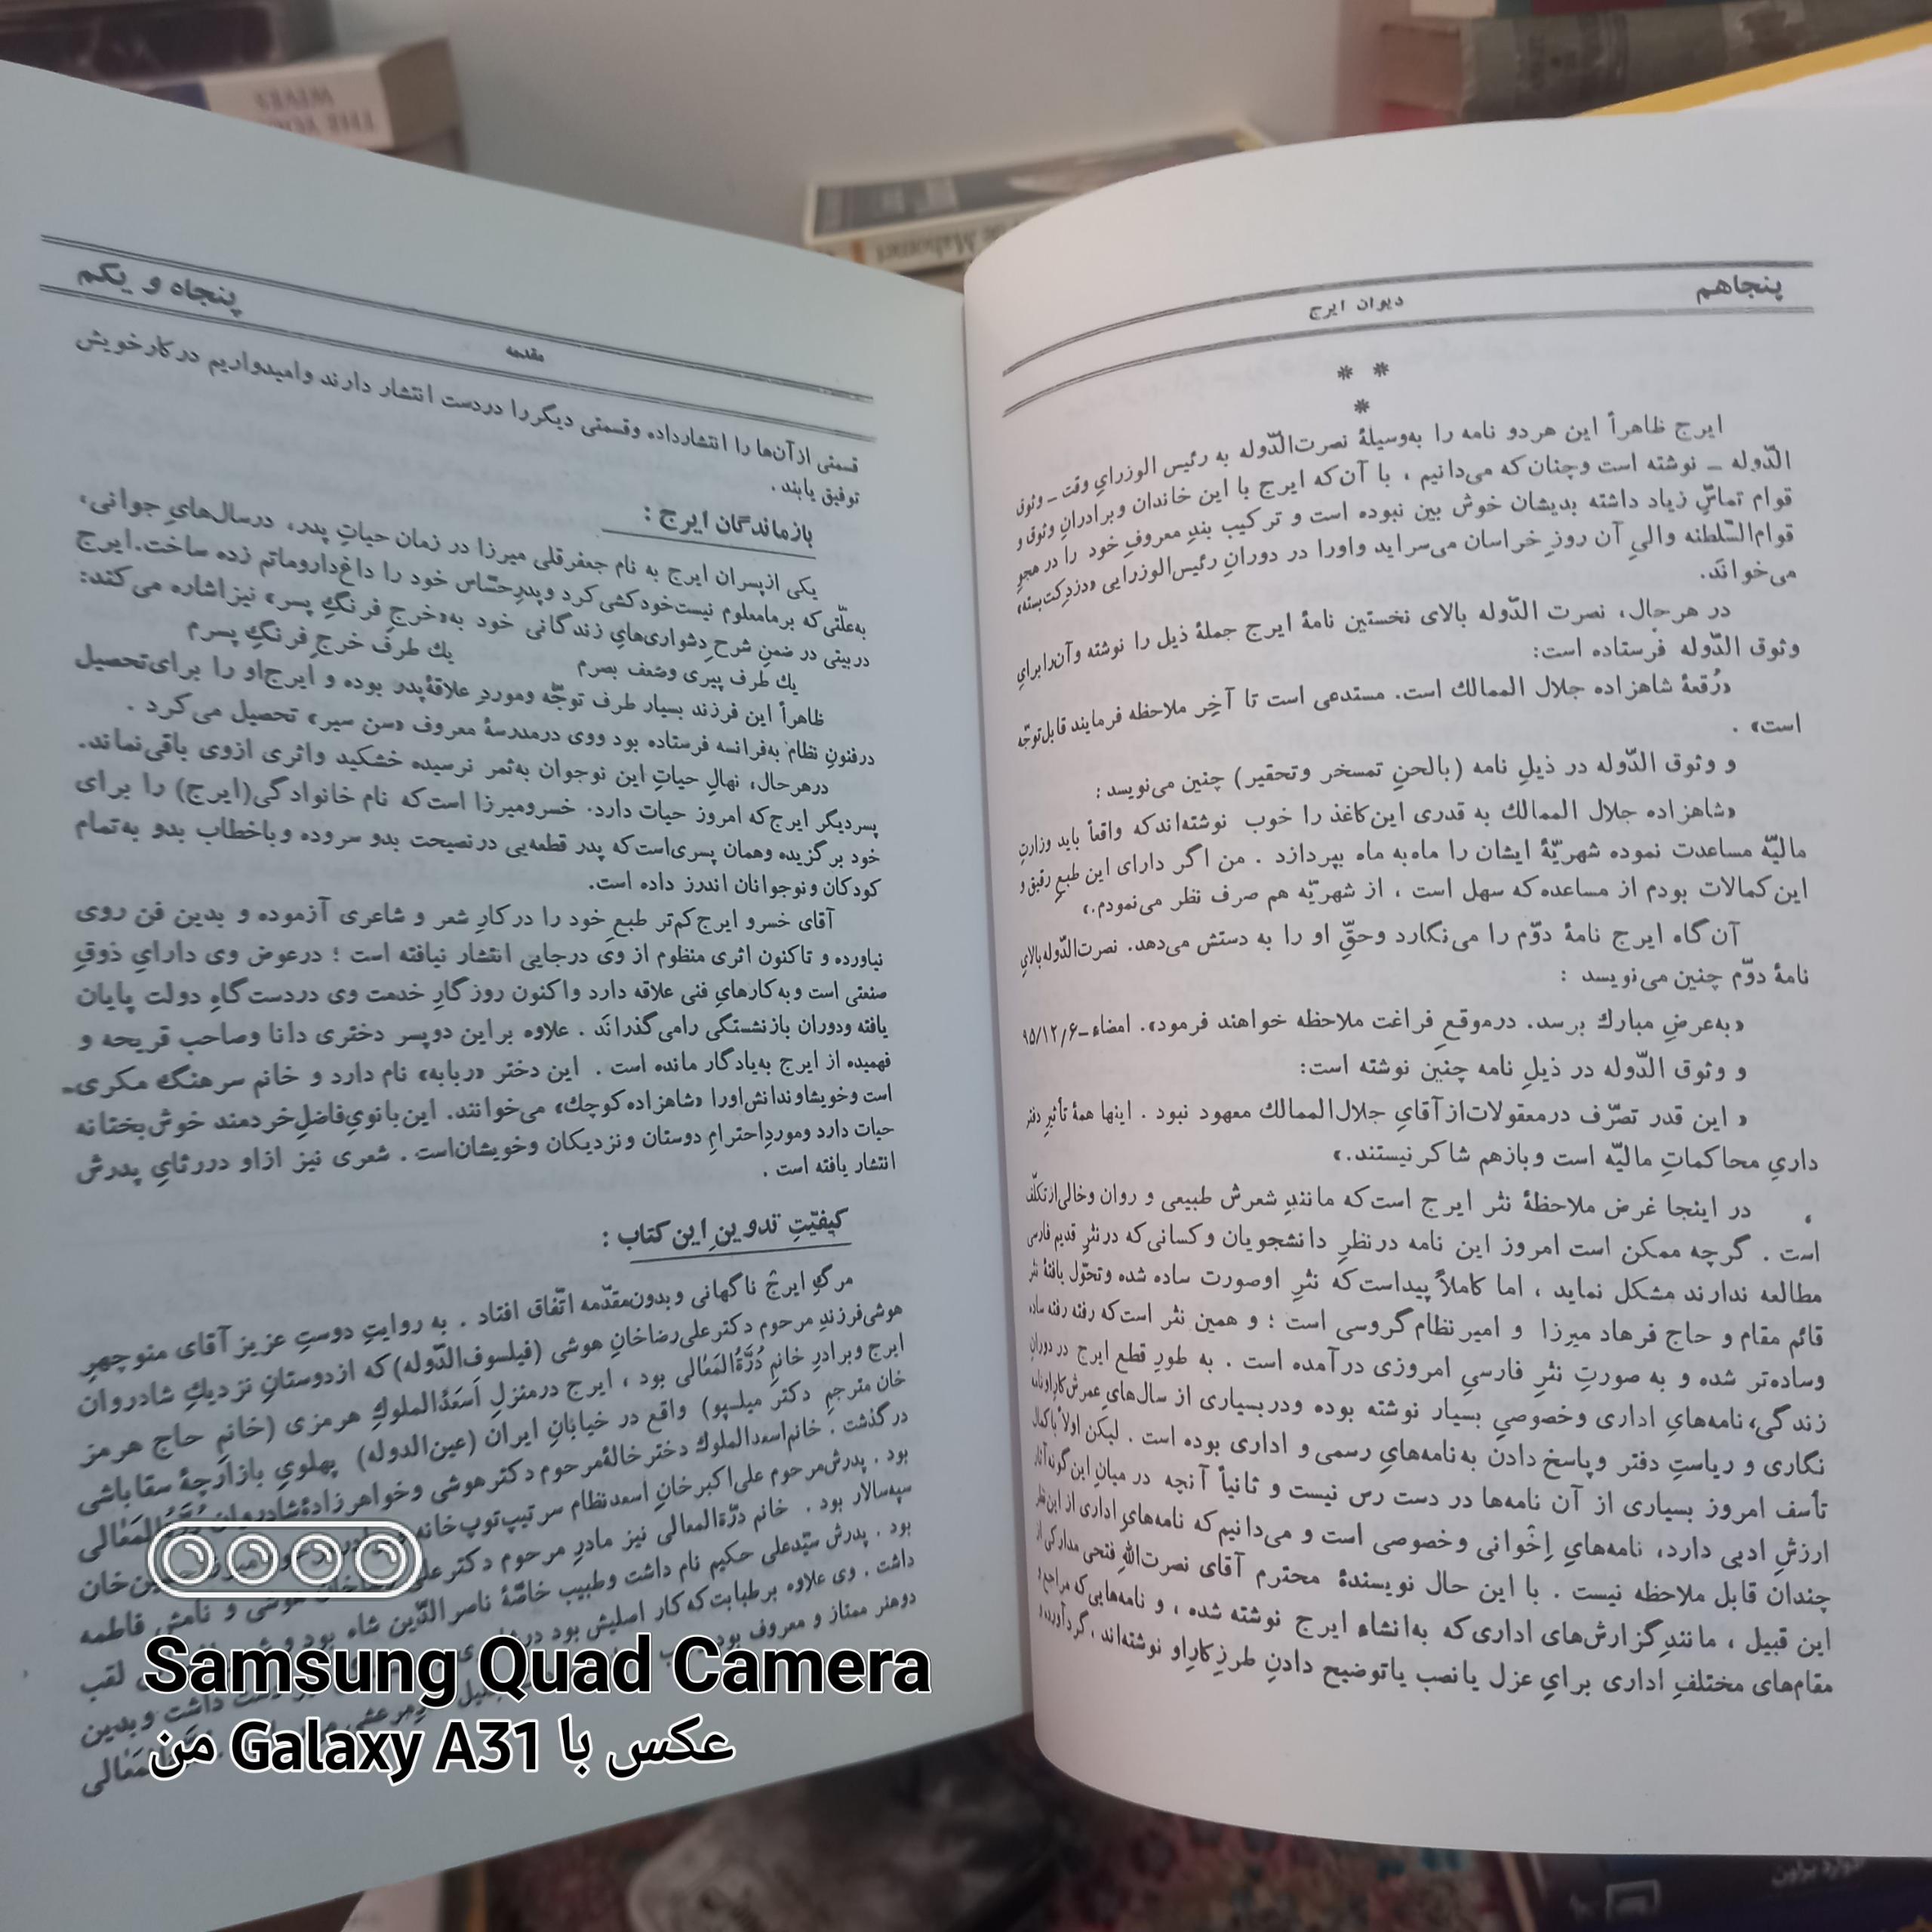 پنجاهم
دیوان ایرج
* *
*
ایرج ظاهراً این هر دو نامه را به‌وسیلهٔ نصرت‌الدّوله به رئیس الوزرایِ وقت ـ وثوق
الدّوله ـ نوشته است وچنان‌که می‌دانیم ، با آن‌که ایرج با این خاندان وبرادرانِ وثوق و
قوام تماسّ زیاد داشته بدیشان خوش بین نبوده است و ترکیب بندِ معروفِ خود را در هجوِ
قوام‌السّلطنه والیِ آن روزِ خراسان می‌سراید واورا در دورانِ رئیس‌الوزرایی «دزدِ کت‌بسته»
می‌خوانَد.
در هرحال، نصرت الدّوله بالای نخستین نامهٔ ایرج جملهٔ ذیل را نوشته وآن‌را برایِ
وثوق الدّوله فرستاده است:
«رُقعهٔ شاهزاده جلال الممالك است. مستدعی است تا آخِر ملاحظه فرمایند قابل‌توجّه
است» .
و وثوق الدّوله در ذیلِ نامه (بالحنِ تمسخر وتحقیر) چنین می‌نویسد :
«شاهزاده جلال الممالك به قدری این‌کاغذ را خوب نوشته‌اندکه واقعاً باید وزارتِ
مالیّه مساعدت نموده شهریّهٔ ایشان را ماه‌به ماه بپردازد . من اگر دارای این طبعِ رقیق و
این‌کمالات بودم از مساعده‌که سهل است ، از شهریّه هم صرف نظر می‌نمودم.»
آن‌گاه ایرج نامهٔ دوّم را می‌نگارد وحقِّ او را به دستش می‌دهد. نصرت‌الدّوله‌بالایِ
نامهٔ دوّم چنین می‌نویسد :
«به‌عرضِ مبارك برسد. درموقعِ فراغت ملاحظه خواهند فرمود». امضاء ـ ۹۵/۱۲/۶
و وثوق الدّوله در ذیلِ نامه چنین نوشته است:
« این قدر تصرّف درمعقولات‌ازآقایِ جلال‌الممالك معهود نبود . اینها همهٔ تأثیرِ دفتر
داریِ محاکماتِ مالیّه است وبازهم شاکر نیستند.»
در اینجا غرض ملاحظهٔ نثر ایرج است‌که مانندِ شعرش طبیعی و روان وخالی‌ازتکلّف
است . گرچه ممکن است امروز این نامه درنظرِ دانشجویان وکسانی‌که درنثرِ قدیم فارسی
مطالعه ندارند مشکل نماید ، اما کاملاً پیداست‌که نثرِ اوصورت ساده شده وتحوّل یافتهٔ نثرِ
قائم مقام و حاج فرهاد میرزا و امیر نظام‌گروسی است ؛ و همین نثر است‌که رفته رفته ساده
وساده‌تر شده و به صورتِ نثرِ فارسیِ امروزی درآمده است . به طورِ قطع ایرج در دورانِ
زندگی، نامه‌هایِ اداری وخصوصیِ بسیار نوشته بوده ودربسیاری از سال‌هایِ عمرش‌کاراونامه
نگاری و ریاستِ دفتر وپاسخ دادن به‌نامه‌هایِ رسمی و اداری بوده است . لیکن اولاً باکمال
تأسف امروز بسیاری از آن نامه‌ها در دست رس نیست و ثانیاً آنچه در میانِ این‌گونه‌آثار
ارزشِ ادبی دارد، نامه‌هایِ اِخْوانی وخصوصی است و می‌دانیم‌که نامه‌هایِ اداری از این‌نظر
چندان قابل ملاحظه نیست . با این حال نویسندهٔ محترم آقای نصرت‌اللهِ فتحی مدارکی از
این قبیل ، مانندِگزارش‌های اداری‌که به‌انشاءِ ایرج نوشته شده ، و نامه‌هایی‌که مراجع و
مقام‌های مختلفِ اداری برایِ عزل یانصب یاتوضیح دادنِ طرزِکارِاو نوشته‌اند ، گردآورده و
پنجاه و یکم
مقدمه
قسمتی از آن‌ها را انتشارداده وقسمتی دیگررا دردست انتشار دارند وامیدواریم درکارخویش
توفیق یابند .
بازماندگان ایرج :
یکی ازپسران ایرج به نام جعفرقلی میرزا در زمان حیاتِ پدر، درسال‌هایِ جوانی،
به‌علّتی‌که برمامعلوم نیست‌خودکشی‌کرد وپدرِحسّاس خود را داغ‌داروماتم زده ساخت.ایرج
دربیتی در ضمنِ شرحِ دشواری‌هایِ زندگانی خود به«خرجِ فرنگِ پسر» نیزاشاره می‌کند:
یك طرف پیری وضعف بصرم
یك طرف خرج فرنگِ پسرم
ظاهراً این فرزند بسیار طرف توجّه وموردِ علاقهٔ‌پدر بوده و ایرج‌او را برای‌تحصیل
درفنونِ نظام به‌فرانسه فرستاده بود ووی درمدرسهٔ معروف «سن سیر» تحصیل می‌کرد .
درهرحال، نهالِ حیاتِ این نوجوان به‌ثمر نرسیده خشکید واثری ازوی باقی‌نماند.
پسردیگر ایرج‌که امروز حیات دارد. خسرومیرزا است‌که نام خانوادگی(ایرج) را برای
خود برگزیده وهمان پسری‌است‌که پدر قطعه‌یی درنصیحت بدو سروده وباخطاب بدو به‌تمام
کودکان ونوجوانان اندرز داده است.
آقای خسرو ایرج‌کم‌تر طبعِ خود را درکارِ شعر و شاعری آزموده و بدین فن روی
نیاورده و تاکنون اثری منظوم از وی درجایی انتشار نیافته است ؛ درعوض وی دارایِ ذوقِ
صنعتی است وبه‌کارهایِ فنی علاقه دارد واکنون روزگارِ خدمت وی دردست‌گاهِ دولت پایان
یافته ودوران بازنشستگی رامی‌گذراند . علاوه براین دوپسر دختری دانا وصاحب قریحه و
فهمیده از ایرج به‌یادگار مانده است . این دختر «ربابه» نام دارد و خانم سرهنگ مکری‌ـ
است وخویشاوندانش‌اورا «شاهزاده‌کوچك» می‌خوانند. این‌بانویِ‌فاضلِ‌خردمند خوش‌بختانه
حیات دارد وموردِاحترامِ دوستان ونزدیکان وخویشان‌است . شعری نیز ازاو دررثایِ پدرش
انتشار یافته است .
کیفیّتِ تدوینِ این کتاب :
مرگِ ایرج ناگهانی وبدون‌مقدّمه اتّفاق افتاد . به روایتِ دوستِ عزیز آقای منوچهرِ
هوشی‌فرزندِ مرحوم دکترعلی‌رضاخانِ هوشی (فیلسوف‌الدّوله)که ازدوستانِ نزدیكِ شادروان
ایرج وبرادرِ خانم دُرَّةُالمَعٰالی بود ، ایرج درمنزلِ اَسعَدُالملوكِ هرمزی (خانمِ حاج هرمز
خان مترجمِ دکتر میلسپو) واقع در خیابانِ ایران (عین‌الدوله) پهلویِ بازارچهٔ سقاباشی
درگذشت . خانم‌اسعدالملوك دخترخالهٔ‌مرحوم دکترهوشی وخواهرزادهٔ‌شادروان دُرَّةُالمَعٰالی
بود . پدرش‌مرحوم علی‌اکبرخانِ اسعدنظام سرتیپ‌توپ‌خانه
سپه‌سالار بود . خانم درّةالمعالی نیز مادرِ مرحوم دکترعلی هوشی و نامش فاطمه
بود . پدرش سیّدعلی حکیم نام داشت وطبیب خاصّهٔ ناصرالدّین شاه بود و لقب
داشت . وی علاوه برطبابت‌که‌کار اصلیش بود در داشت وبدین
دوهنر ممتاز و معروف بود
Samsung Quad Camera
عکس با Galaxy A31 من